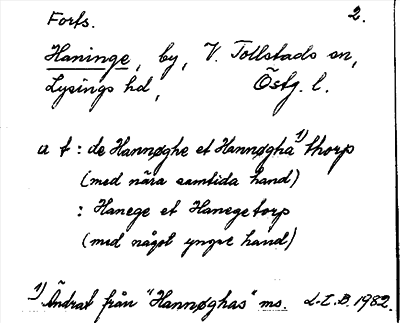 Forts. 2.
Haninge, by, V. Tollstads sn,
Lysings hd, Östg. l.
a t : de Hannøghe et Hannøgha 1) thorp
(med nära samtida hand)
: Hanege et Hanegetorp
(med något yngre hand)
1) Ändrat från "Hannøghas" ms. L.Z.B. 1982.